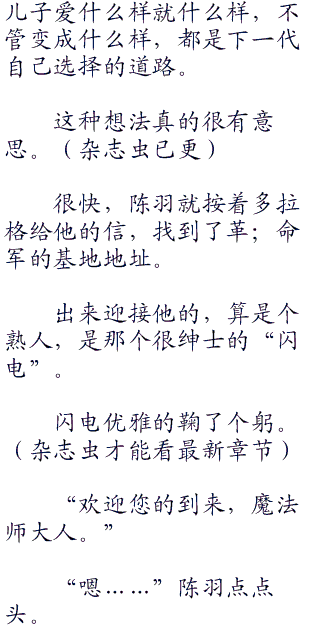 儿子爱什么样就什么样，不
管变成什么样，都是下一代
自己选择的道路。
这种想法真的很有意
思。（杂志虫已更）
很快，陈羽就按着多拉
格给他的信，找到了革；命
军的基地地址。
出来迎接他的，算是个
熟人，是那个很绅士的“闪
电”。
闪电优雅的鞠了个躬。
（杂志虫才能看最新章节）
“欢迎您的到来，魔法
师大人。”
“嗯……”陈羽点点
头。